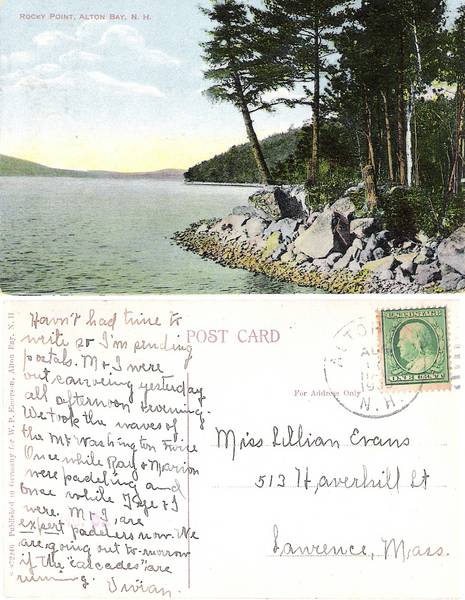 ROCKY POINT, ALTON BAY, N. H.
Havn't had time to
write so I'm sending
postals. M & I were
out canoeing yesterday
all afternoon & evening.
We took the waves of
the Mt Washington twice
Once while Ray & Marion
were padeling and
once while Faye & I
were. M & I, are
expert padelers now. We
are going out to-morrow
if the "cascades" are
running. Vivian.
Published in Germany for W. P. Emerson, Alton Bay, N. H.
POST CARD
For Address Only
ALTON
AUG
N. H.
U.S. POSTAGE
ONE CENT
Miss Lillian Evans
513 Haverhill St
Lawrence, Mass.